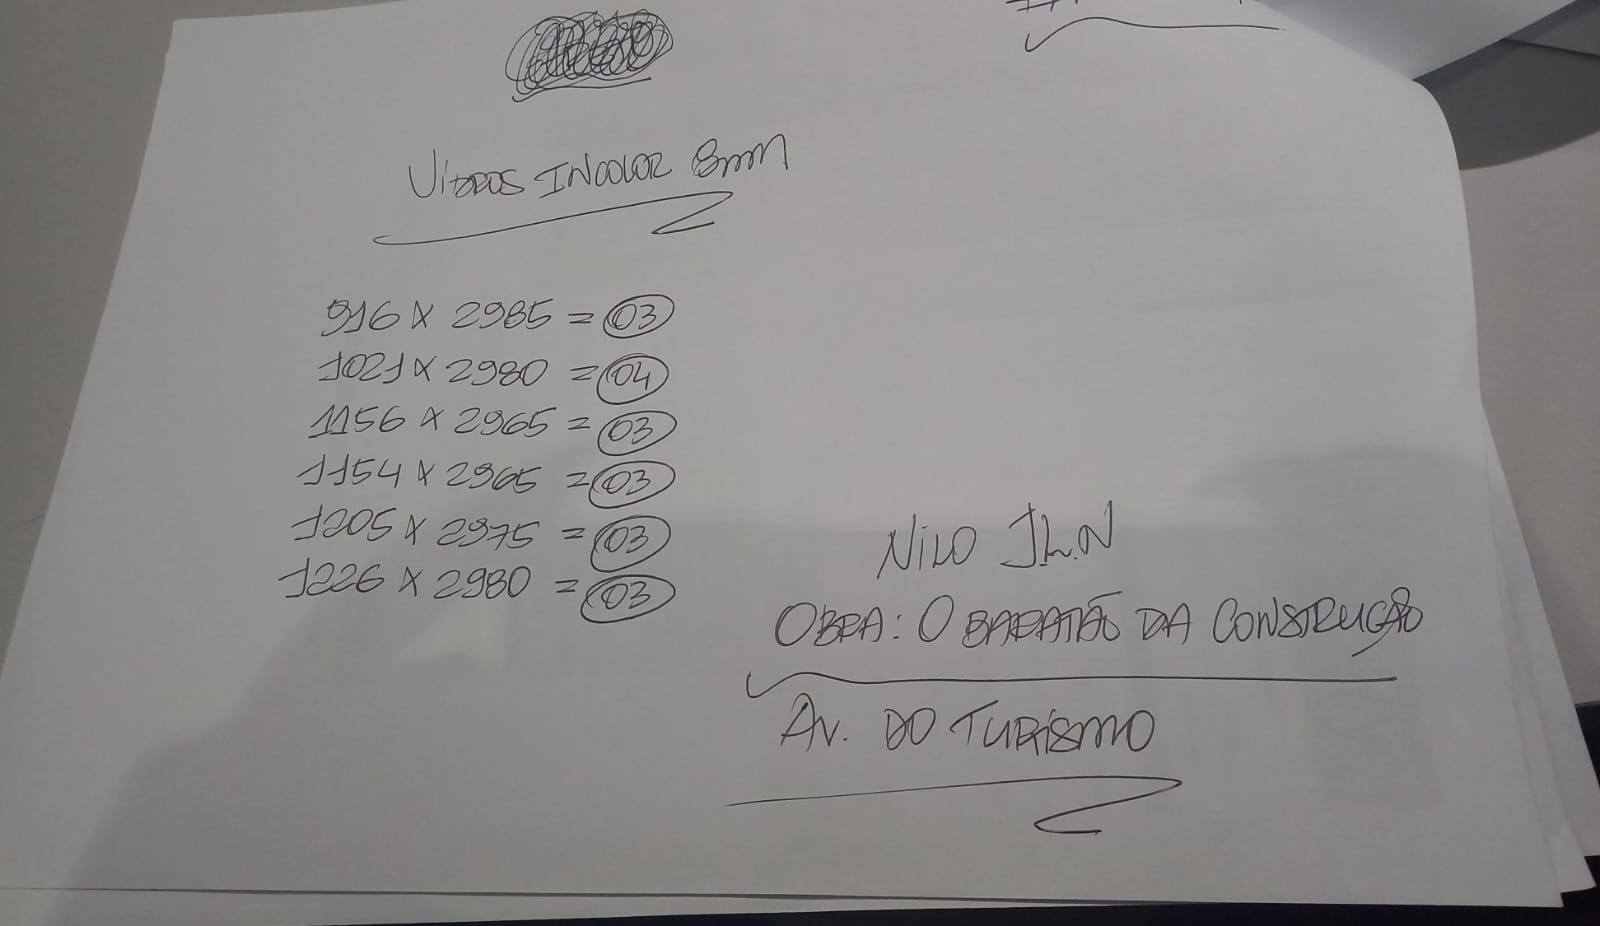 VidROS INCOLOR 8mm
916 x 2985 = 03
1021 x 2980 = 04
1156 x 2965 = 03
1154 x 2965 = 03
1205 x 2975 = 03
1226 x 2980 = 03
NiLO J.L.N
OBRA: O BARATÃO DA CONSTRUÇÃO
AV. DO TURiSMO